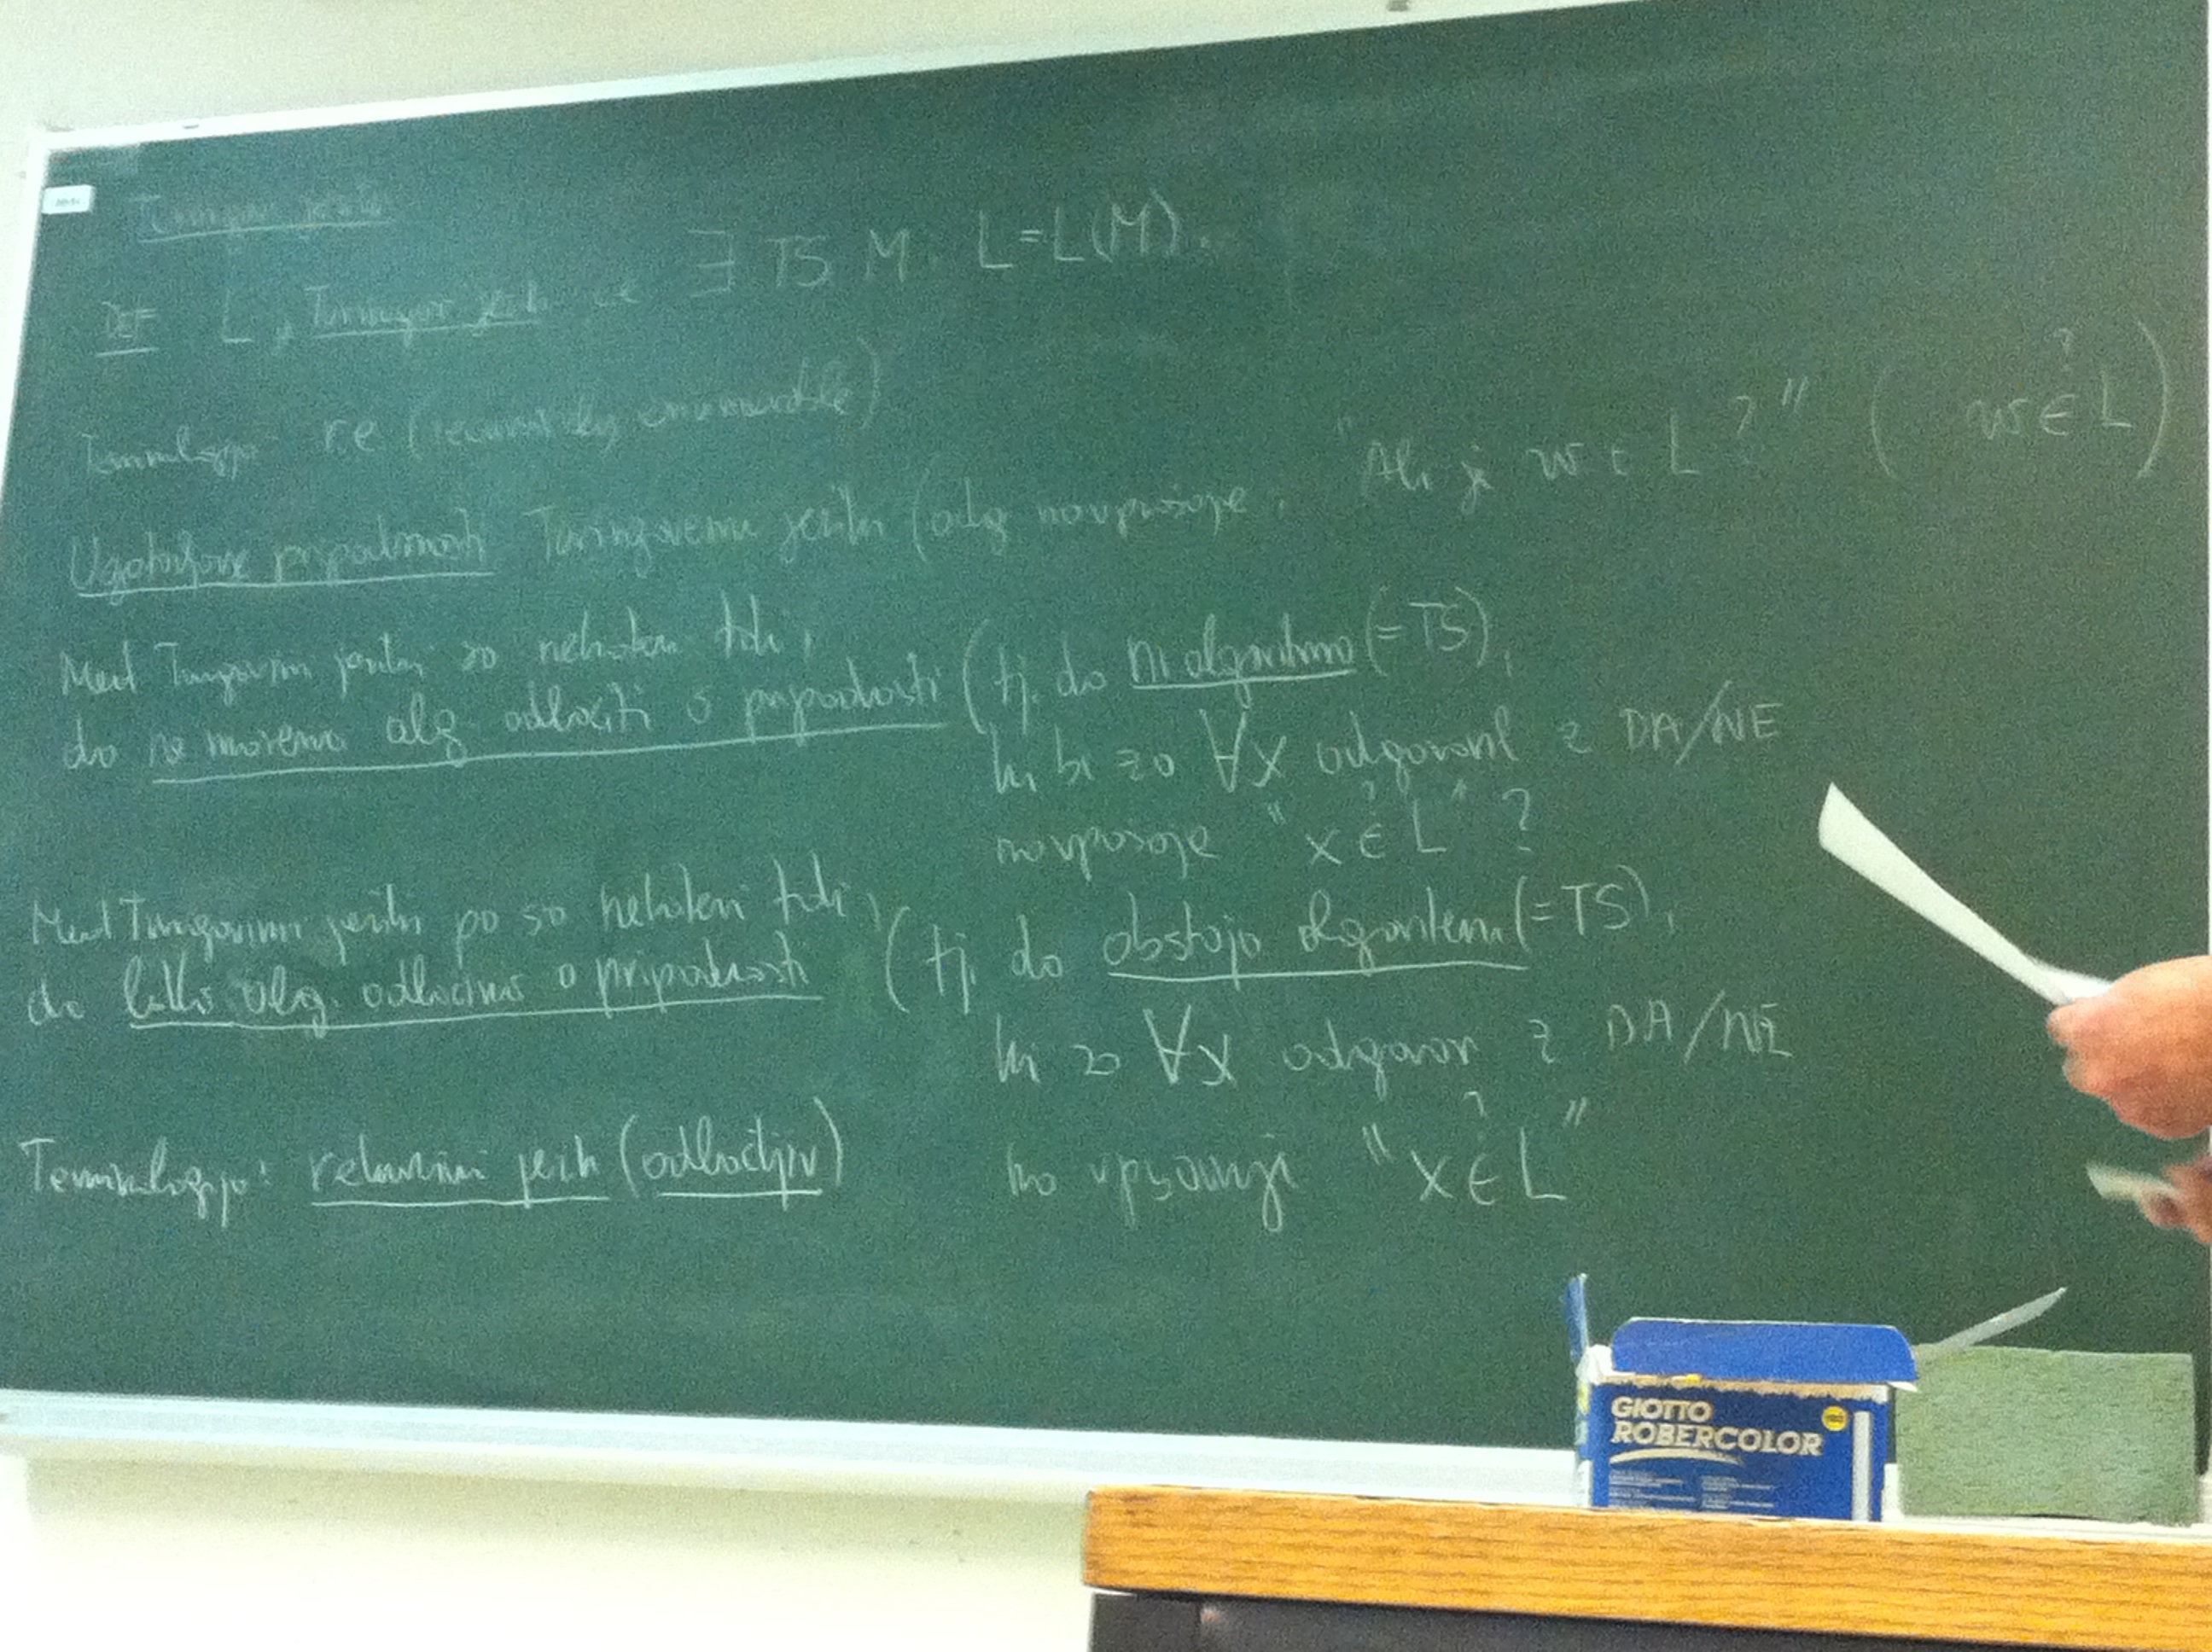 Turingov jezik
DEF L je Turingov jezik če ∃ TS M. L=L(M).
Terminologija: r.e (recursively enumerable)
Ugotavljanje pripadnosti Turingovemu jeziku (odg na vprašanje: "Ali je w ∈ L?" (w ∈? L)
Med Turingovimi jeziki so nekateri taki,
da ne moremo alg. odločiti o pripadnosti (tj. da ni algoritma (=TS),
ki bi za ∀x odgovoril z DA/NE
na vprašanje "x ∈? L" ?
Med Turingovimi jeziki pa so nekateri taki,
da lahko alg. odločimo o pripadnosti (tj. da obstaja algoritem (=TS),
ki za ∀x odgovori z DA/NE
na vprašanje "x ∈? L"
Terminologija: rekurzivni jezik (odločljiv)
GIOTTO
ROBERCOLOR